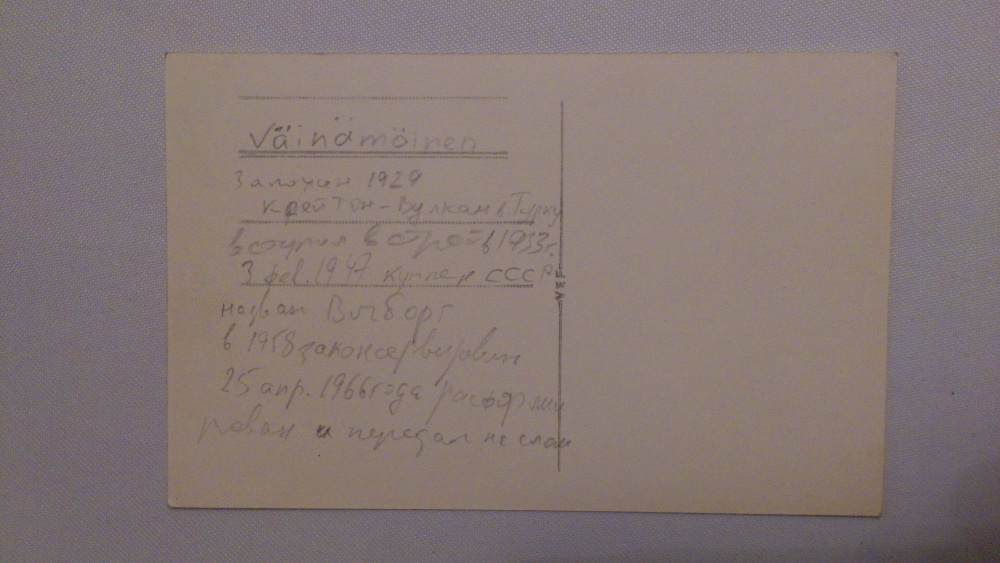 Väinämöinen
Заложен 1929
Крейтон-Вулкан в Турку
вступил в строй в 1933г.
3 фев. 1947 куплен СССР
назван Выборг
в 1958 законсервирован
25 апр. 1966 года расформи
рован и передан на слом
VEF